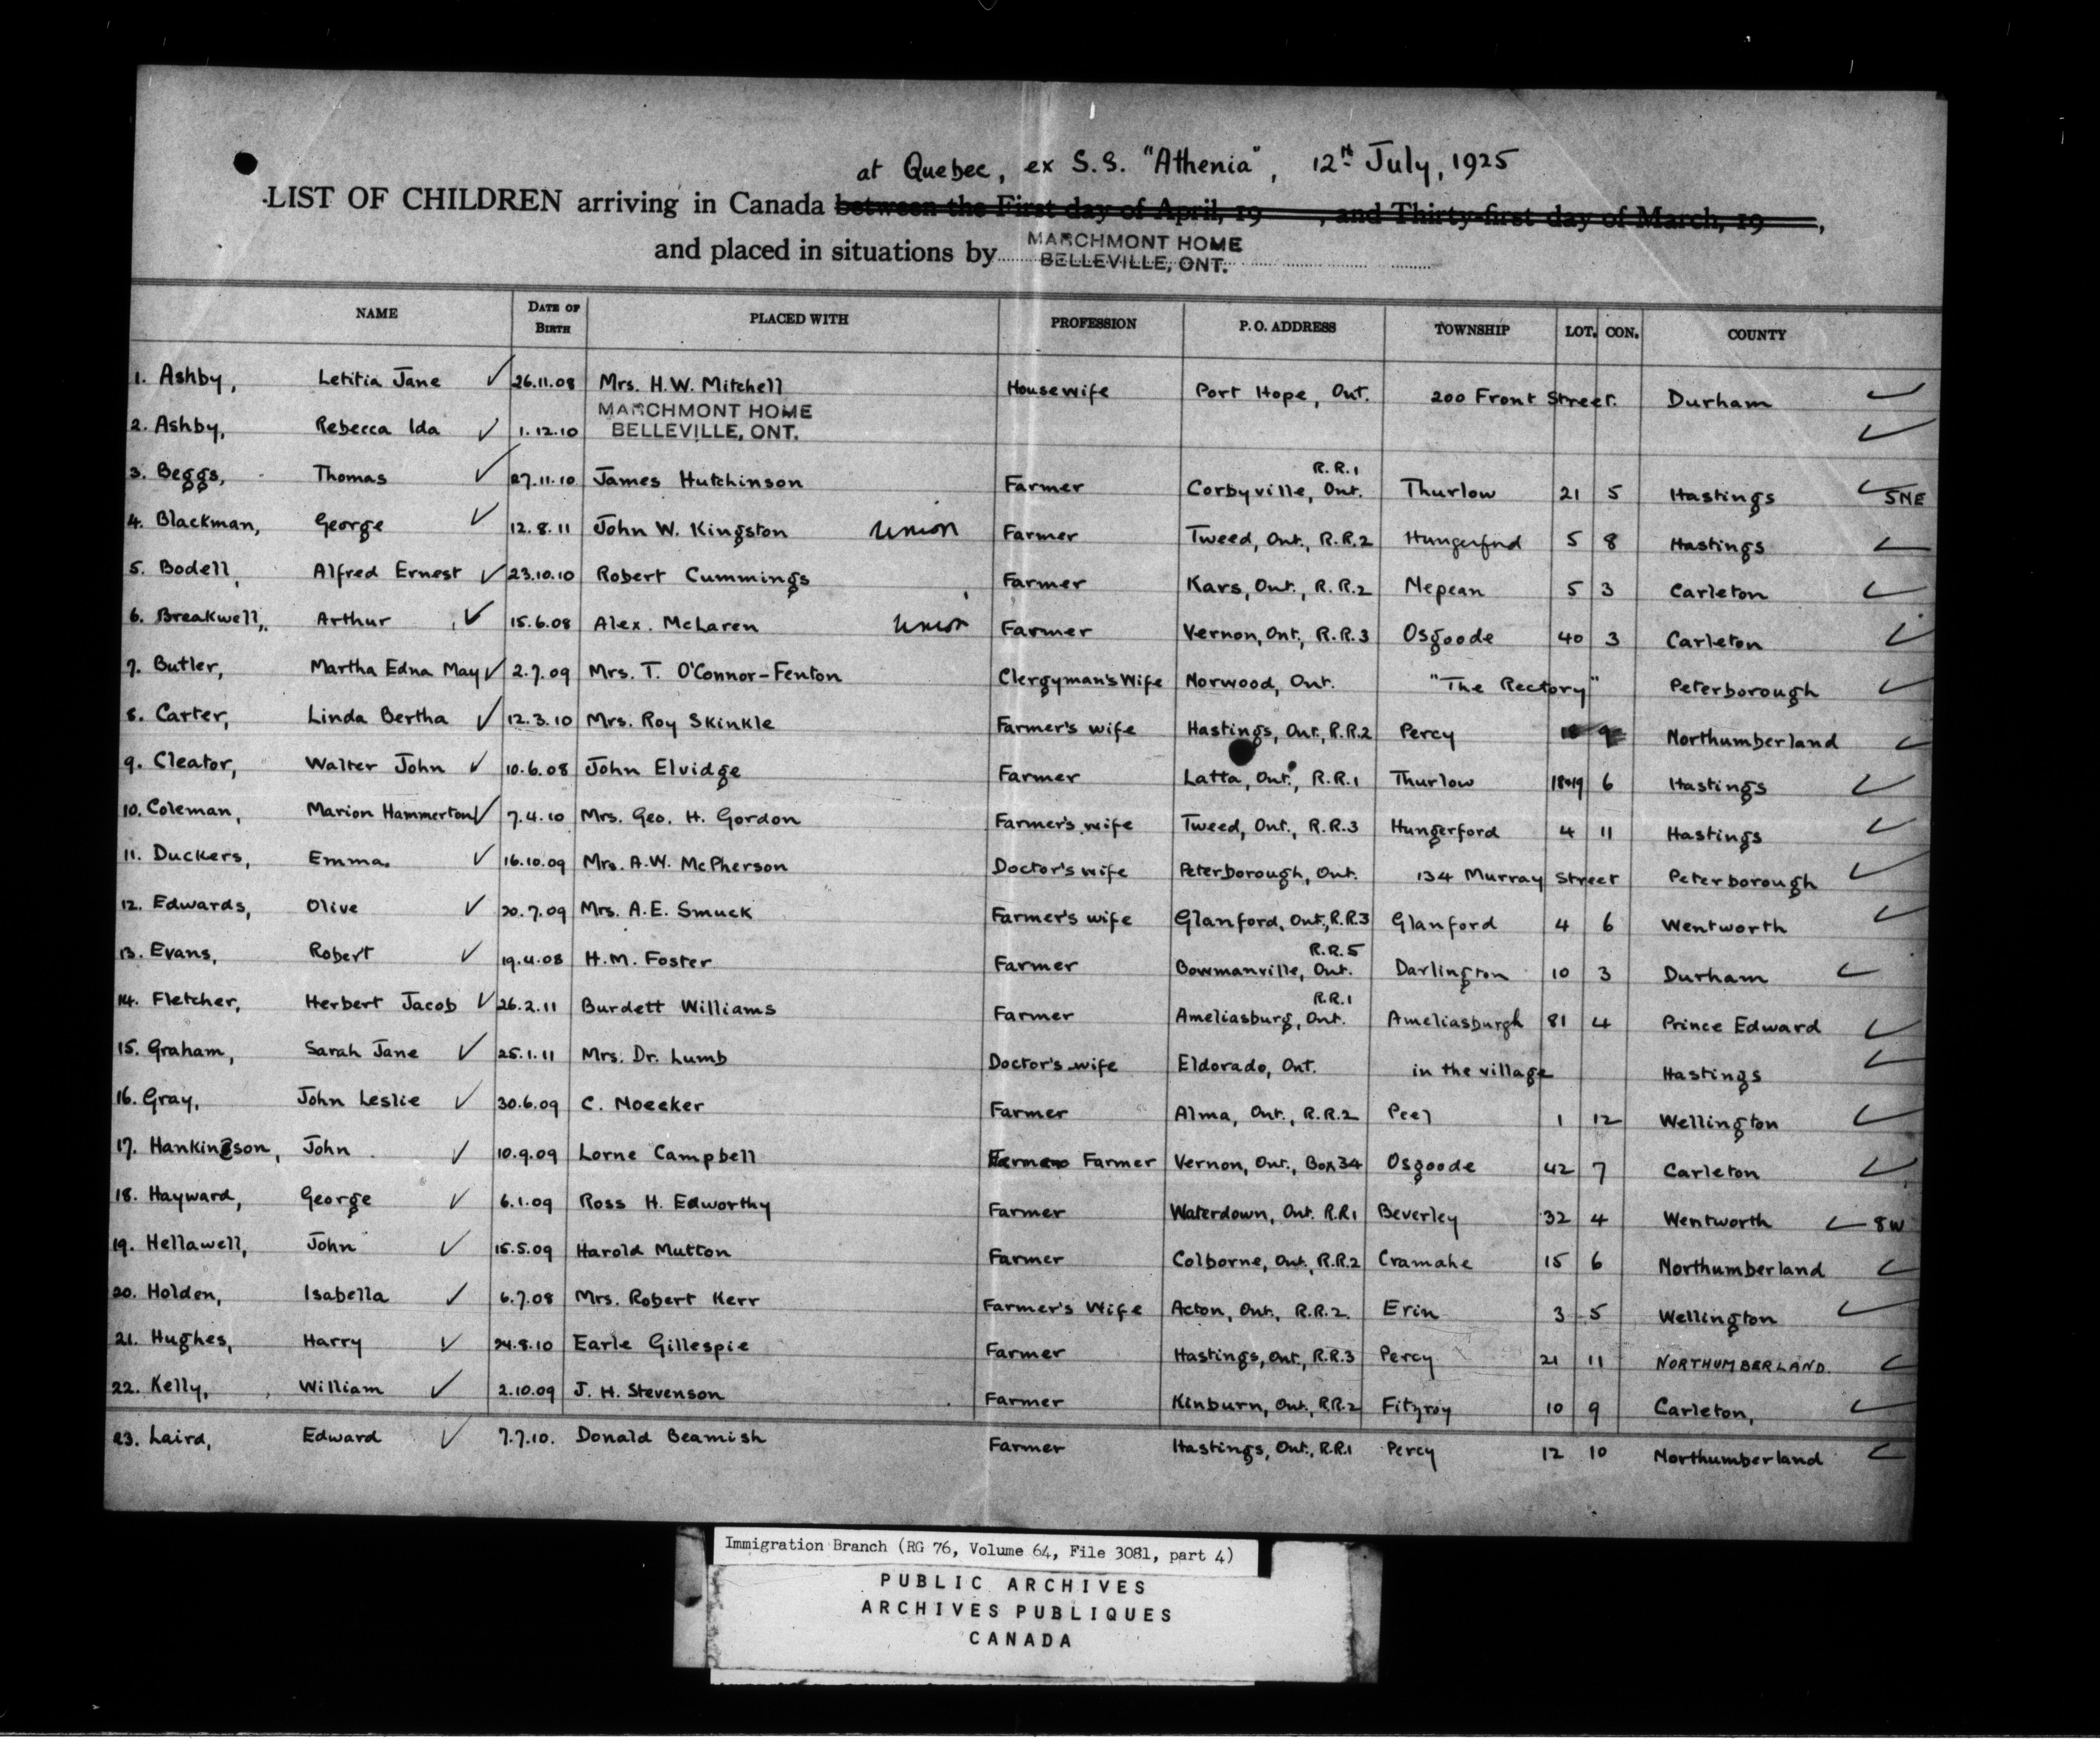 at Quebec, ex S.S. "Athenia", 12th July, 1925
LIST OF CHILDREN arriving in Canada between the First day of April, 19 , and Thirty-first day of March, 19 ,
and placed in situations by MARCHMONT HOME
BELLEVILLE, ONT.
NAME DATE OF BIRTH PLACED WITH PROFESSION P. O. ADDRESS TOWNSHIP LOT. CON. COUNTY
1. Ashby, Letitia Jane ✓ 26.11.08 Mrs. H.W. Mitchell Housewife Port Hope, Ont. 200 Front Street. Durham ✓
2. Ashby, Rebecca Ida ✓ 1.12.10 MARCHMONT HOME BELLEVILLE, ONT. ✓
3. Beggs, Thomas ✓ 27.11.10 James Hutchinson Farmer Corbyville, Ont. R.R.1 Thurlow 21 5 Hastings ✓ 5NE
4. Blackman, George ✓ 12.8.11 John W. Kingston Union Farmer Tweed, Ont., R.R.2 Hungerford 5 8 Hastings ✓
5. Bodell, Alfred Ernest ✓ 23.10.10 Robert Cummings Farmer Kars, Ont., R.R.2 Nepean 5 3 Carleton ✓
6. Breakwell, Arthur ✓ 15.6.08 Alex. McLaren Union Farmer Vernon, Ont., R.R.3 Osgoode 40 3 Carleton ✓
7. Butler, Martha Edna May ✓ 2.7.09 Mrs. T. O'Connor-Fenton Clergyman's Wife Norwood, Ont. "The Rectory" Peterborough ✓
8. Carter, Linda Bertha ✓ 12.3.10 Mrs. Roy Skinkle Farmer's wife Hastings, Ont., R.R.2 Percy Northumberland ✓
9. Cleator, Walter John ✓ 10.6.08 John Elvidge Farmer Latta, Ont., R.R.1 Thurlow 18+19 6 Hastings ✓
10. Coleman, Marion Hammerton ✓ 7.4.10 Mrs. Geo. H. Gordon Farmer's wife Tweed, Ont., R.R.3 Hungerford 4 11 Hastings ✓
11. Duckers, Emma. ✓ 16.10.09 Mrs. A.W. McPherson Doctor's wife Peterborough, Ont. 134 Murray Street Peterborough ✓
12. Edwards, Olive ✓ 20.7.09 Mrs. A.E. Smuck Farmer's wife Glanford, Ont., R.R.3 Glanford 4 6 Wentworth ✓
13. Evans, Robert ✓ 19.4.08 H.M. Foster Farmer Bowmanville, Ont. R.R.5 Darlington 10 3 Durham ✓
14. Fletcher, Herbert Jacob ✓ 26.2.11 Burdett Williams Farmer Ameliasburg, Ont. R.R.1 Ameliasburgh 81 4 Prince Edward ✓
15. Graham, Sarah Jane ✓ 25.1.11 Mrs. Dr. Lumb Doctor's wife Eldorado, Ont. in the village Hastings ✓
16. Gray, John Leslie ✓ 30.6.09 C. Noecker Farmer Alma, Ont., R.R.2 Peel 1 12 Wellington ✓
17. Hankinson, John ✓ 10.9.09 Lorne Campbell Farmer Vernon, Ont., Box 34 Osgoode 42 7 Carleton ✓
18. Hayward, George ✓ 6.1.09 Ross H. Edworthy Farmer Waterdown, Ont. R.R.1 Beverley 32 4 Wentworth ✓ 8W
19. Hellawell, John ✓ 15.5.09 Harold Mutton Farmer Colborne, Ont., R.R.2 Cramahe 15 6 Northumberland ✓
20. Holden, Isabella ✓ 6.7.08 Mrs. Robert Kerr Farmer's Wife Acton, Ont., R.R.2. Erin 3 5 Wellington ✓
21. Hughes, Harry ✓ 24.8.10 Earle Gillespie Farmer Hastings, Ont., R.R.3 Percy 21 11 NORTHUMBERLAND. ✓
22. Kelly, William ✓ 2.10.09 J. H. Stevenson Farmer Kinburn, Ont., R.R.2 Fitzroy 10 9 Carleton, ✓
23. Laird, Edward ✓ 7.7.10. Donald Beamish Farmer Hastings, Ont., R.R.1 Percy 12 10 Northumberland ✓
Immigration Branch (RG 76, Volume 64, File 3081, part 4)
PUBLIC ARCHIVES
ARCHIVES PUBLIQUES
CANADA